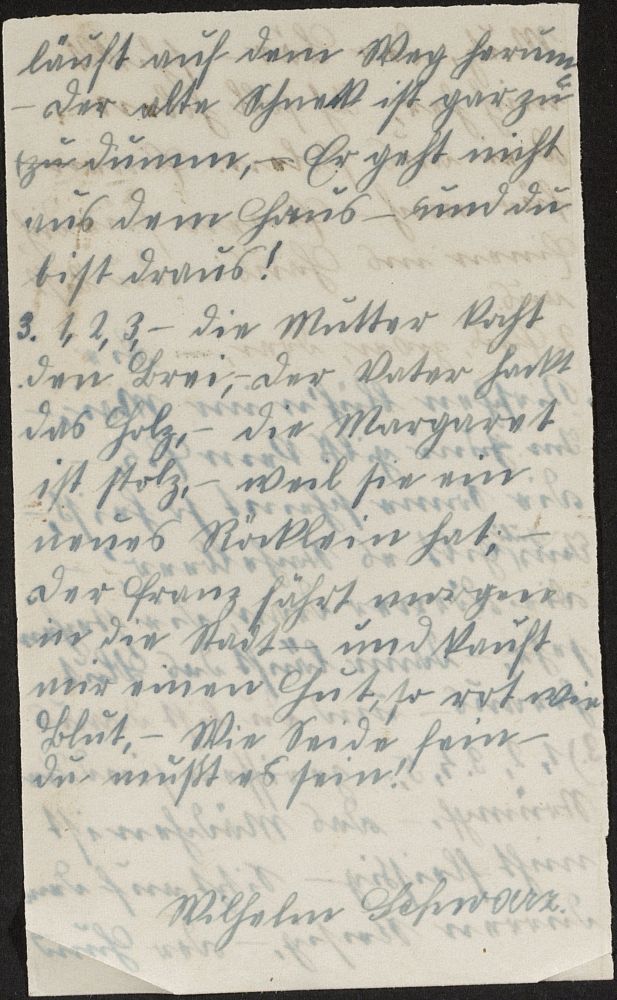 läuft auf dem Weg herum
– der alte Schnekk ist gar zu
zu dumm, – Er geht nicht
aus dem Haus – und du
bist draus!
3. 1, 2, 3, – die Mutter kocht
den Brei, – der Vater hackt
das Holz, – die Margaret
ist stolz, – weil sie ein
neues Röcklein hat; –
Der Franz fährt morgen
in die Stadt – und kauft
mir einen Hut, so rot wie
Blut, – Wie Seide fein –
du mußt es sein!
Wilhelm Schwarz.